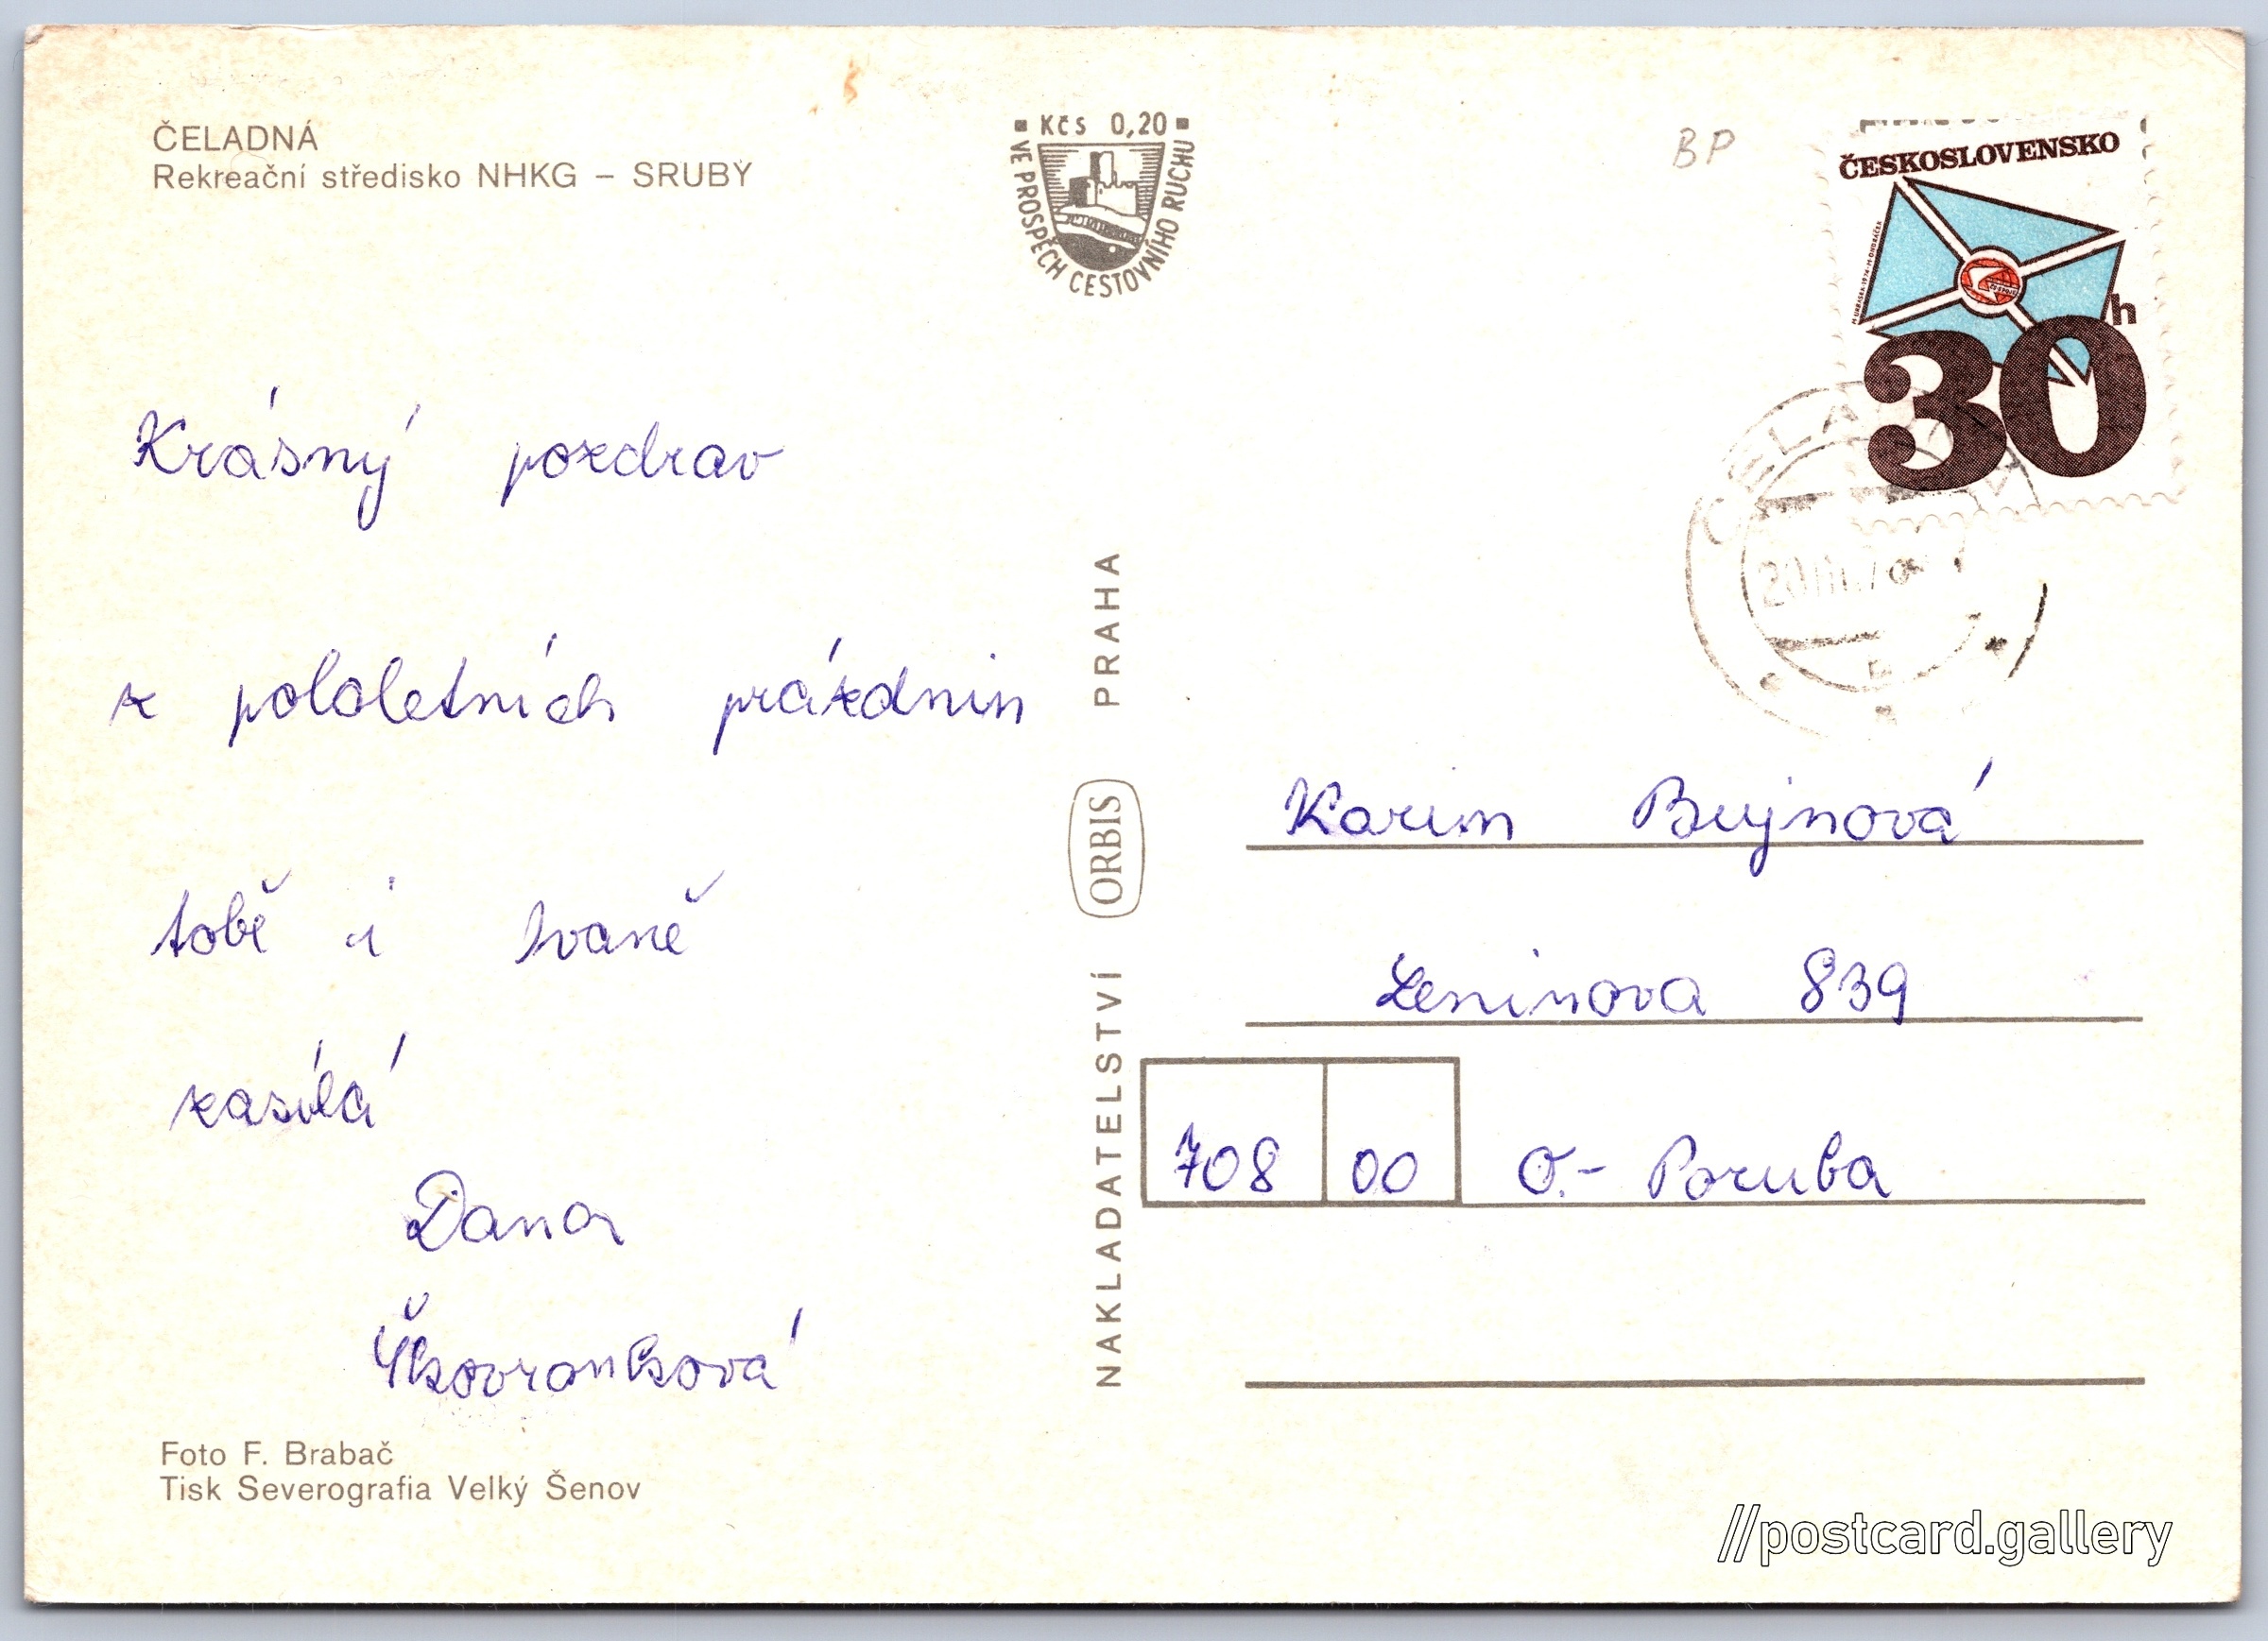 ČELADNÁ
Rekreační středisko NHKG – SRUBY
Kčs 0,20
VE PROSPĚCH CESTOVNÍHO RUCHU
BP
ČESKOSLOVENSKO
30 h
Krásný pozdrav
z pololetních prázdnin
tobě i Ivaně
zasílá
Dana
Škovranková
Foto F. Brabač
Tisk Severografia Velký Šenov
NAKLADATELSTVÍ ORBIS PRAHA
Karin Bujnová
Leninova 839
708 00 O.- Poruba
//postcard.gallery